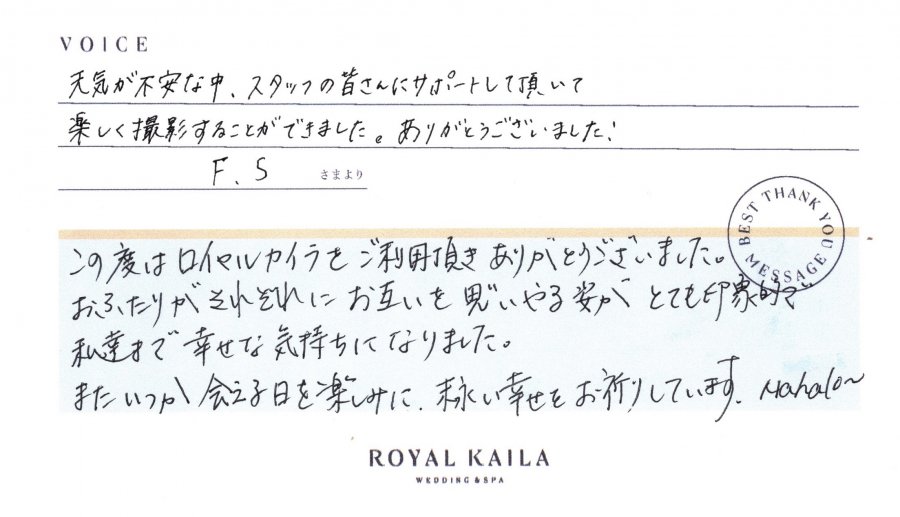 VOICE
天気が不安な中、スタッフの皆さんにサポートして頂いて
楽しく撮影することができました。ありがとうございました!
F.S さまより
BEST THANK YOU MESSAGE
この度はロイヤルカイラをご利用頂きありがとうございました。
おふたりがそれぞれにお互いを思いやる姿がとても印象的で
私達まで幸せな気持ちになりました。
またいつか会える日を楽しみに、末永い幸せをお祈りしています。Mahalo~
ROYAL KAILA
WEDDING & SPA